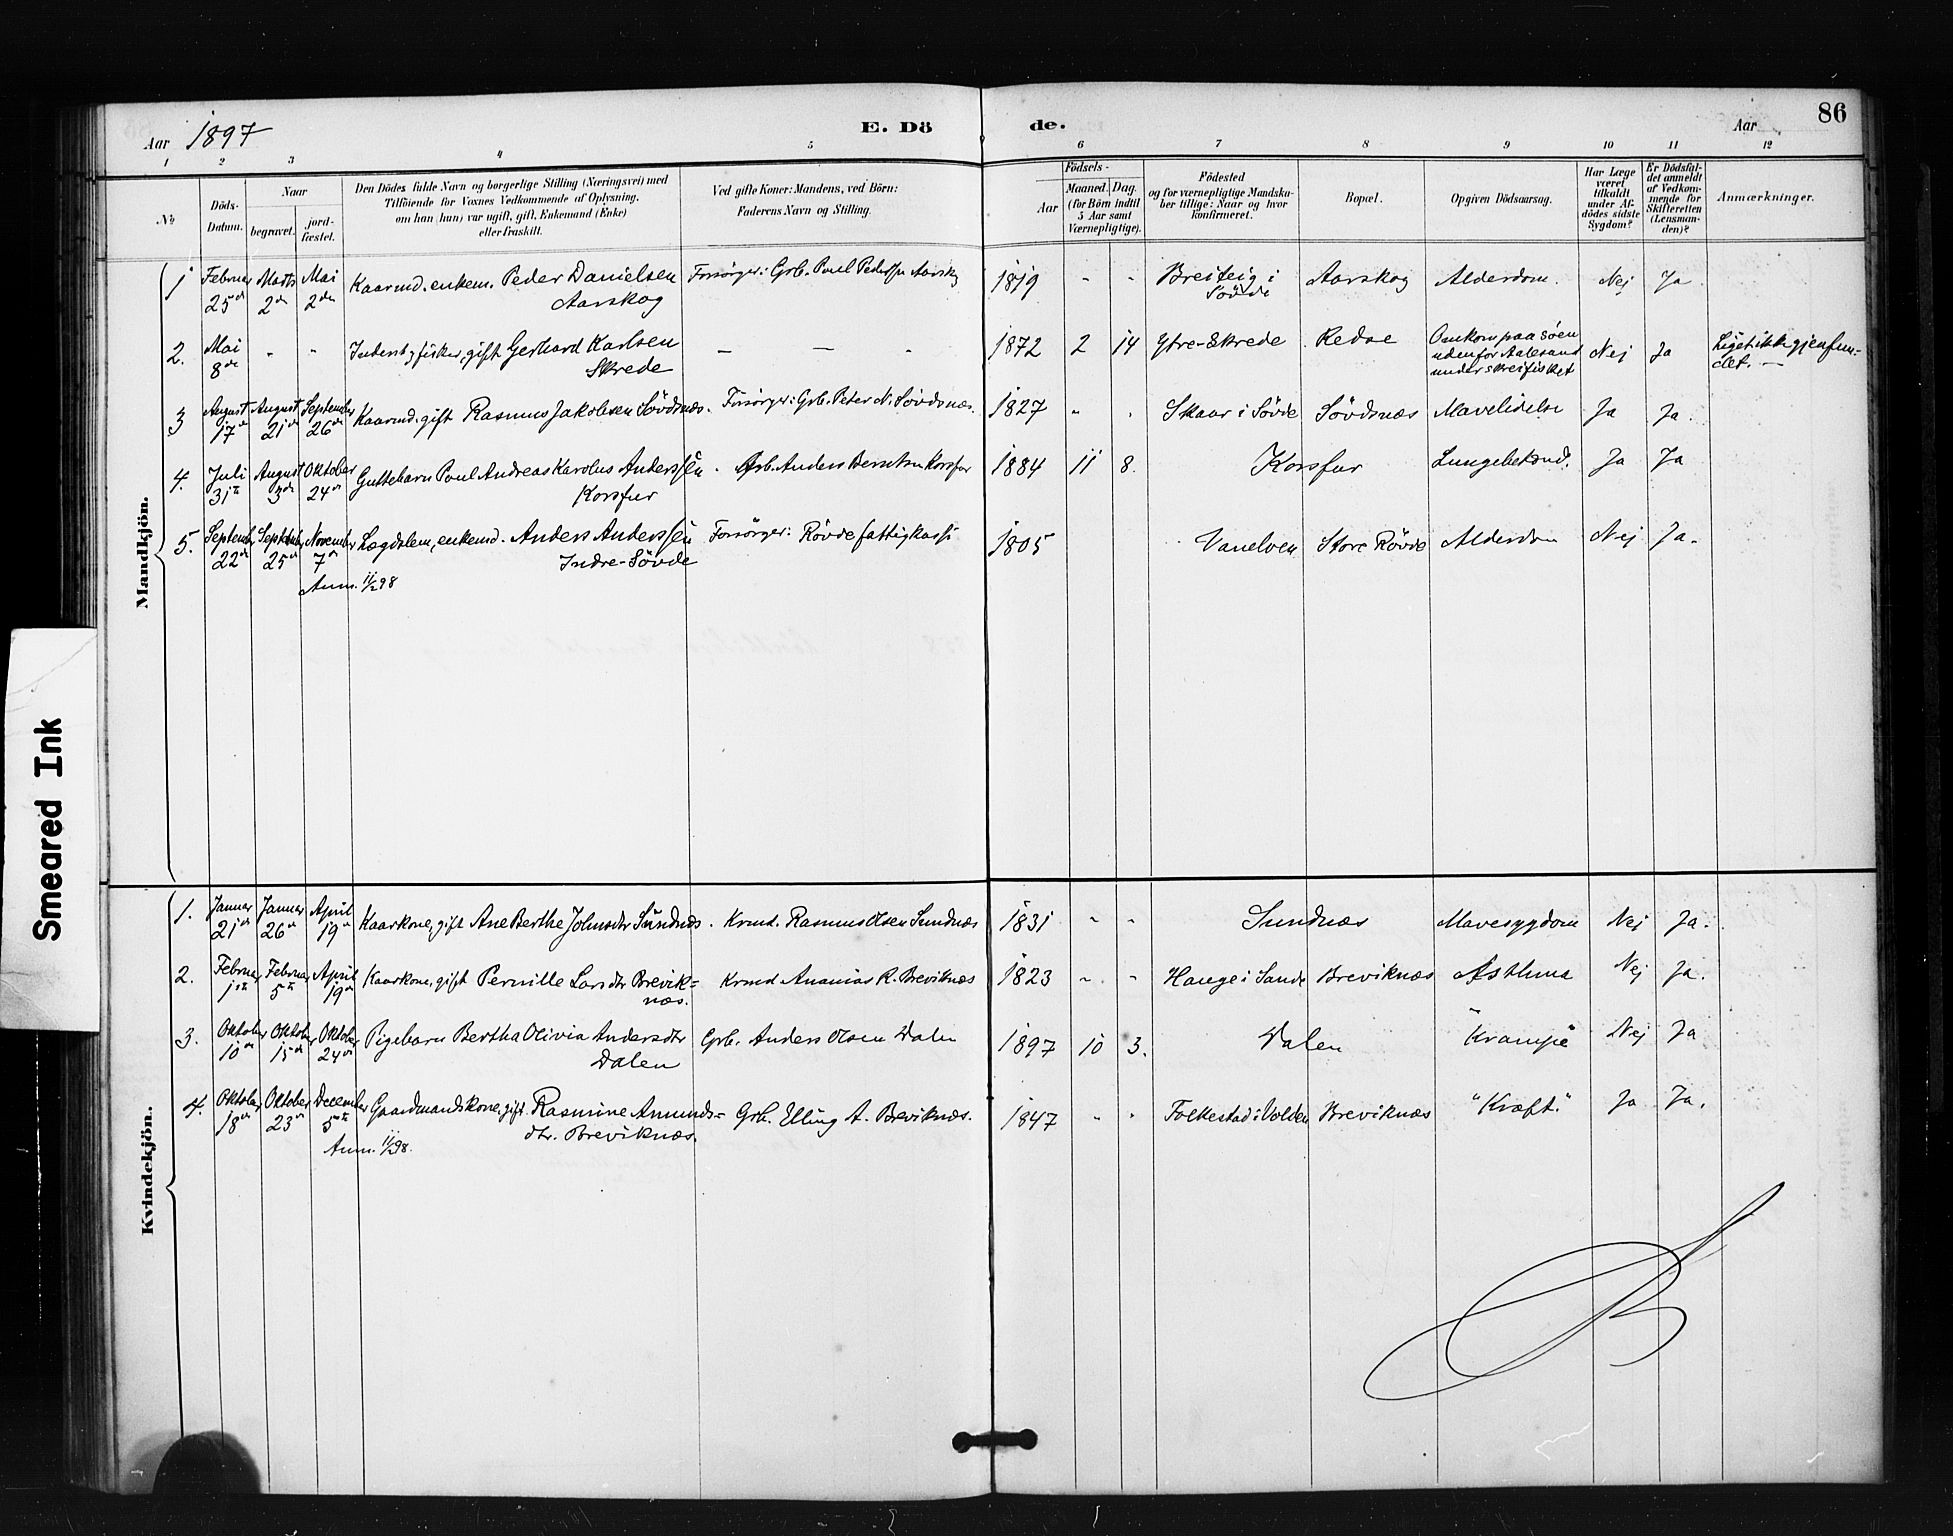 Aar 1897
E. Dö
de.
Aar
86
1 2 3 4 5 6 7 8 9 10 11 12
№
Döds-
Datum.
Naar
begravet.
jord-
fæstet.
Den Dödes fulde Navn og borgerlige Stilling (Næringsvei) med
Tilföiende for Voxnes Vedkommende af Oplysning,
om han (hun) var ugift, gift, Enkemand (Enke)
eller fraskilt.
Ved gifte Koner: Mandens, ved Börn:
Faderens Navn og Stilling.
Födsels-
Aar
Maaned. Dag.
(for Börn indtil
5 Aar samt
Værnepligtige).
Födested
og for værnepligtige Mandska-
ber tillige: Naar og hvor
Konfirmeret.
Bopæl.
Opgiven Dödsaarsag.
Har Læge
været
tilkaldt
under Af-
dödes sidste
Sygdom?
Er Dödsfal-
det anmeldt
af Vedkom-
mende for
Skifteretten
(Lensman-
den)?
Anmærkninger.
Mandkjön.
1 Februar 25de Marts 2de Mai 2den Kaarmd. enkem. Peder Danielsen Aarskog Forsörger: Grb. Poul Pedersen Aarskog 1819 - - Breiteig i Sövde Aarskog Alderdom. Nej Ja
2. Mai 8de - - Inderst, fisker, gift Gerhard Karlsen Skrede — — - 1872 2 14 Ytre-Skrede Redae Omkom paa söen udenfor Aalesund under skreifisket Nej Ja Liget ikke gjenfun- det. —
3 August 17de August 21de September 26de Kaarmd. gift Rasmus Jakobsen Sövdsnæs. Forsörger: Grb. Peter N. Sövdsnæs. 1827 - - Skaar i Sövde Sövdsnæs Mavelidelse Ja Ja.
4. Juli 31te August 3de Oktober 24de Guttebarn Poul Andreas Karolus Anderssen Korsfur Grb. Anders Berntsen Korsfur 1884 11 8. Korsfur Lungebetænd. Ja Ja
5. September 22de September 25de November 7de Lægdslem, enkemd. Anders Anderssen Indre-Sövde Forsörger: Rövde fattigkasse 1805 Vanelven Store Rövde Alderdom Nej Ja.
Anm. 11/2 98
Kvindekjön.
1. Januar 21de Januar 26de April 19de Kaarkone, gift Ane Berthe Johnsdtr Sundnæs. Krmd. Rasmus Olsen Sundnæs 1831 - - Sundnæs Mavesygdom Nej Ja.
2. Februar 1ste Februar 5te April 19de Kaarkone, gift Pernille Larsdtr Brevik= næs. Krmd Ananias R. Breviknæs 1823 - - Hauge i Sande Breviknæs Asthma Nej Ja.
3. Oktober 10de Oktober 15de Oktober 24de Pigebarn Bertha Olivia Andersdtr Dalen Grb. Anders Olsen Dalen 1897 10 3. Dalen "Krampe" Nej Ja
4. Oktober 18de Oktober 23de December 5te Gaardmandskone, gift Rasmine Amunds= dtr. Breviknæs. Grb. Elling A. Breviknæs. 1847 - - Folkestad i Volden Breviknæs "Kræft." Ja Ja.
Anm. 11/2 98.
Smeared Ink